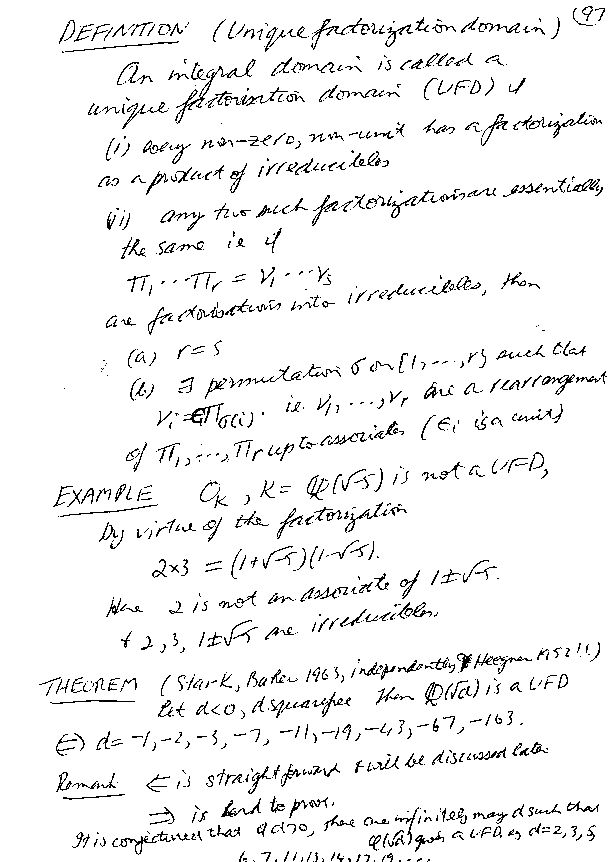 (97
DEFINITION (Unique factorization domain)
An integral domain is called a
unique factorisation domain (UFD) if
(i) every non-zero, non-unit has a factorization
as a product of irreducibles
(ii) any two such factorizations are essentially
the same ie if
π₁ ⋯ πᵣ = γ₁ ⋯ γₛ
are factorisations into irreducibles, then
(a) r = s
(b) ∃ permutation σ on {1, ..., r} such that
γᵢ = επσ(i). ie. γ₁, ..., γᵣ are a rearrangement
of π₁, ..., πᵣ up to associates (εᵢ is a unit)
EXAMPLE O_K, K = ℚ(√-5) is not a UFD,
By virtue of the factorization
2×3 = (1+√-5)(1-√-5).
Here 2 is not an associate of 1±√-5.
+ 2, 3, 1±√-5 are irreducibles.
THEOREM (Stark, Baker 1963, independently, Heegner 1952!!)
Let d<0, d squarefree Then ℚ(√d) is a UFD
⇔ d = -1, -2, -3, -7, -11, -19, -43, -67, -163.
Remark ⇐ is straightforward + will be discussed later
⇒ is hard to prove.
It is conjectured that if d>0, there are infinitely many d such that
ℚ(√d) a UFD, eg d=2, 3, 5,
6, 7, 11, 13, 14, 17, 19, ...